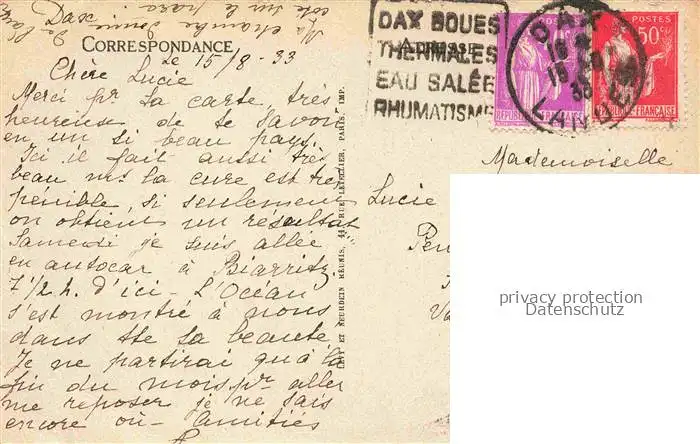 Dax
CORRESPONDANCE
le 15/8-33
Chère Lucie
Merci pr la carte, très
heureuse de te savoir
en un si beau pays.
Ici il fait aussi très
beau ms la cure est très
pénible, si seulement
on obtient un résultat
Samedi je suis allée
en autocar à Biarritz
1/2 h. d'ici - L'Océan
s'est montré à nous
dans tte sa beauté
Je ne partirai qu'à la
fin du mois pr aller
me reposer je ne sais
encore où - Amitiés
LÉVY ET NEURDEIN RÉUNIS, 44, RUE LETELLIER, PARIS, IMP.
DAX BOUES
THERMALES
EAU SALÉE
RHUMATISME
ADRESSE
DAX
LANDES
POSTES
50c
RÉPUBLIQUE FRANÇAISE
Mademoiselle
Lucie
privacy protection
Datenschutz